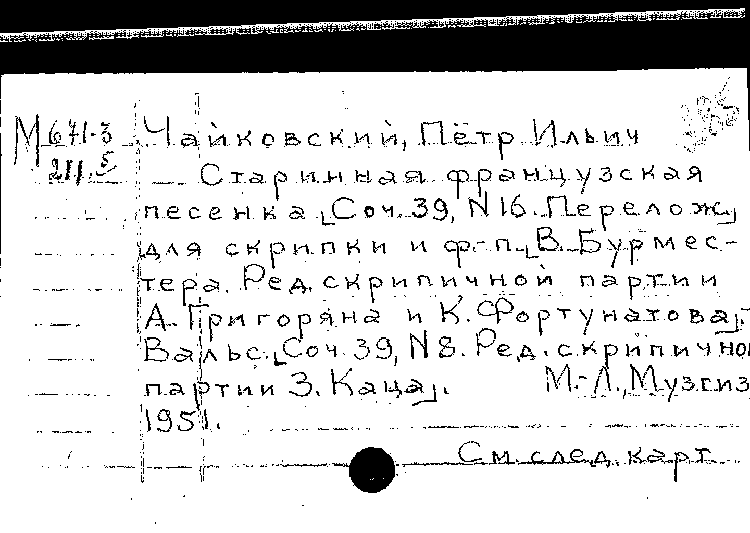 М 671-3
211.5
Чайковский, Пётр Ильич
Старинная французская
песенка [Соч. 39, N 16. Перелож.
для скрипки и ф-п.] В. Бурмес-
тера. Ред. скрипичной партии
А. Григоряна и К. Фортунатова].
Вальс. [Соч. 39, N 8. Ред. скрипичной
партии З. Каца]. М.-Л., Музгиз
1951.
См. след. карт